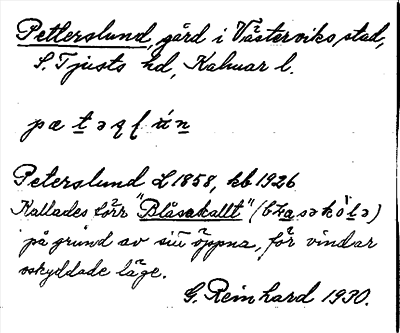 Petterslund, gård i Västerviks stad,
S. Tjusts hd, Kalmar l.
Peterslund L 1858, kb 1926
Kallades förr "Blåsekallt"
på grund av sitt öppna, för vindar
oskyddade läge.
G. Reinhard 1930.